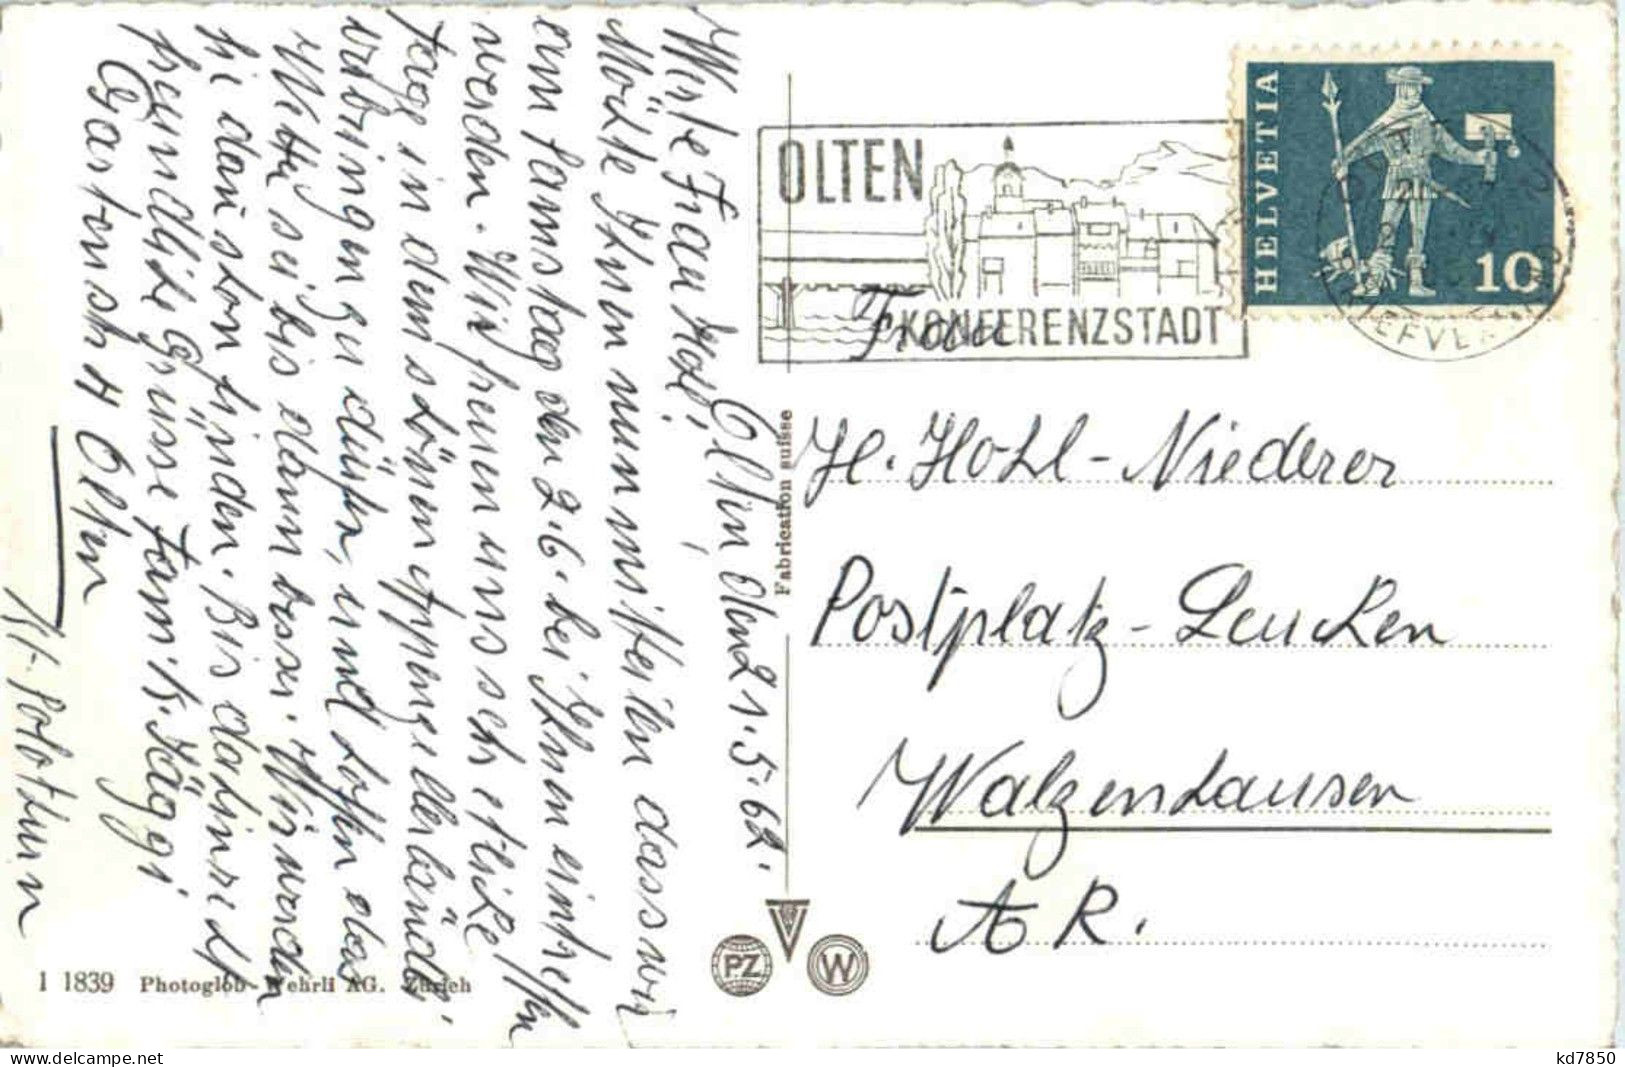 OLTEN
KONFERENZSTADT
HELVETIA
10
Frau
H. Hohl - Niederer
Postplatz - Leuchen
Walzenhausen
AR.
Fabrication suisse
PZ
W
1 1839 Photoglob-Wehrli AG. Zürich
Olten den 21.5.62.
Werte Frau Hohl,
Möchte Ihnen nun mitteilen dass wir
am Samstag den 2.6. bei Ihnen eintreffen
werden. Wir freuen uns sehr etliche
Tage in dem schönen Appenzellerländli
verbringen zu dürfen, und hoffen das
Wetter sei bis dann besser. Wir werden
Sie dann schon finden. Bis dahin seid
freundliche Grüsse Fam. K. Jäggi
Gartenstr. 4 Olten
Kt. Solothurn
kd7850